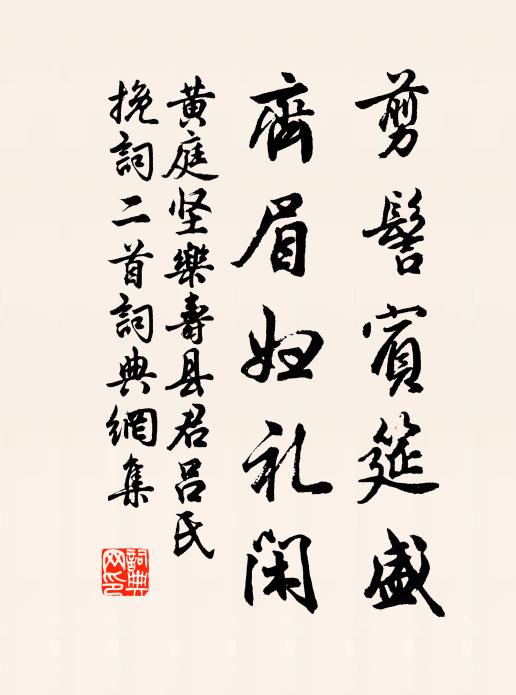 剪髻賓筵盛
齊眉妇礼闲
黄庭坚樂壽县君吕氏
挽詞二首詞典網集
詞典网印